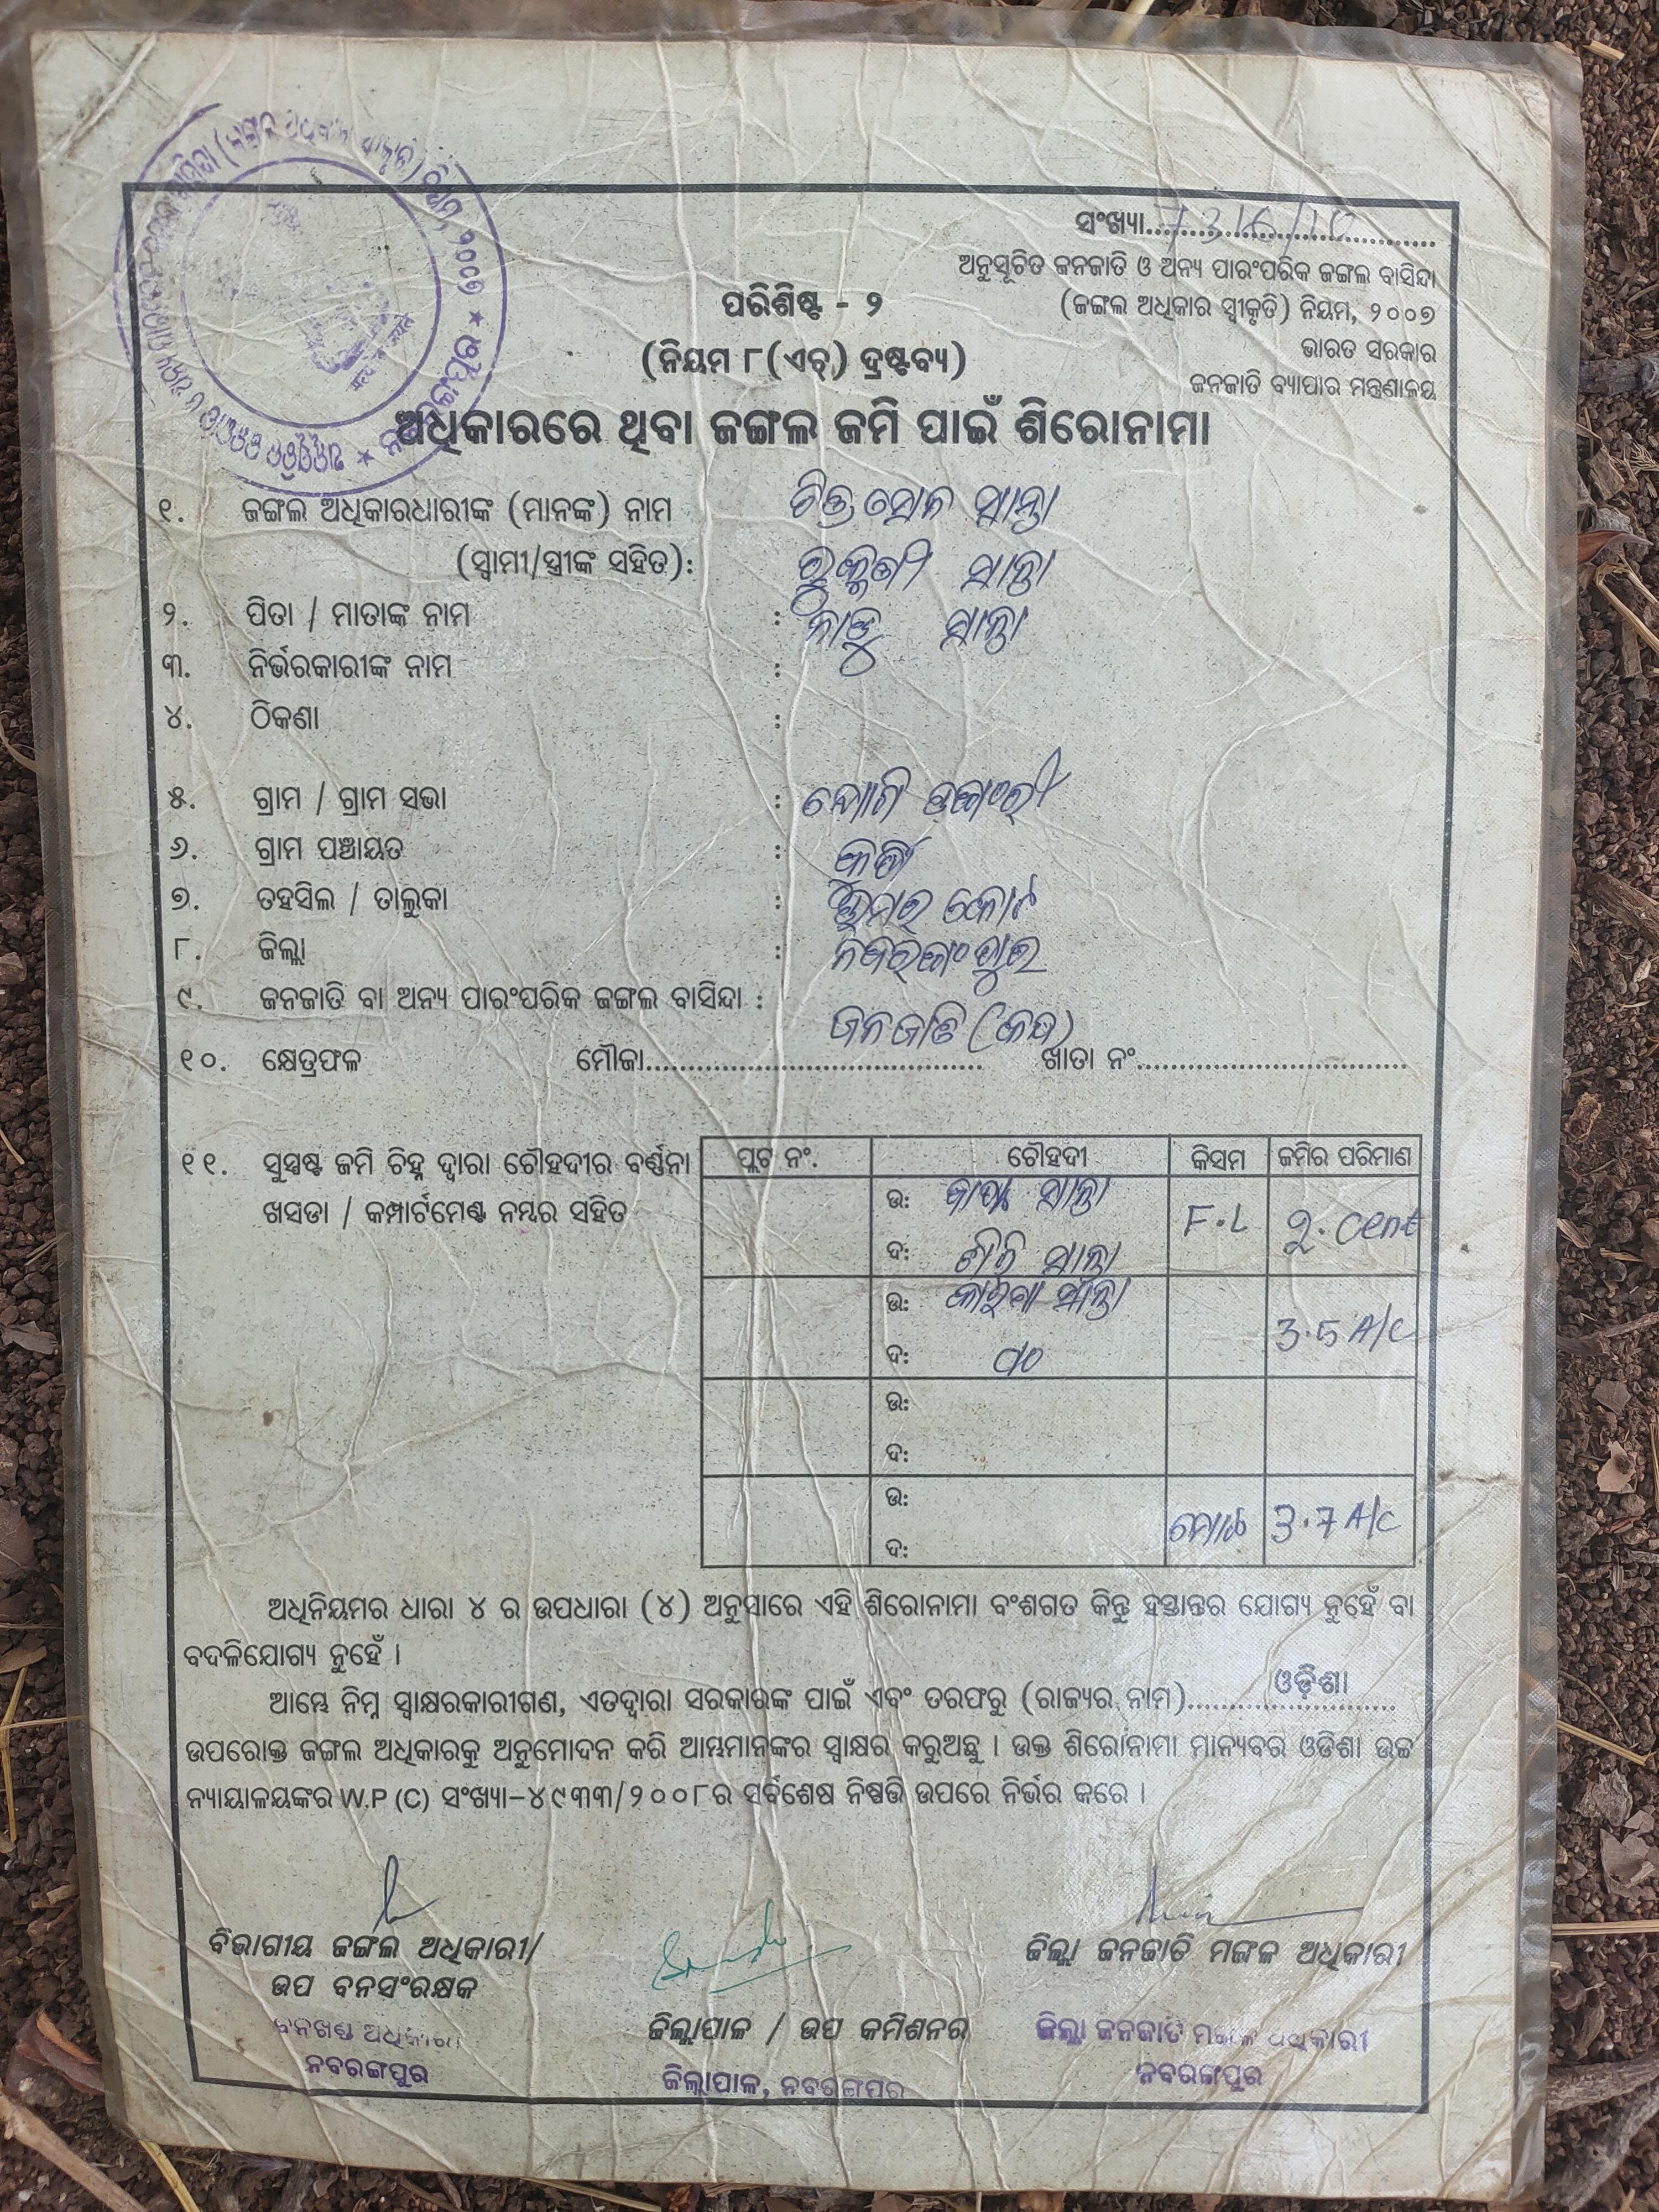 ସଂଖ୍ୟା..............................
ଅନୁସୂଚିତ ଜନଜାତି ଓ ଅନ୍ୟ ପାରଂପରିକ ଜଙ୍ଗଲ ବାସିନ୍ଦା
(ଜଙ୍ଗଲ ଅଧିକାର ସ୍ୱୀକୃତି) ନିୟମ, ୨୦୦୭
ଭାରତ ସରକାର
ଜନଜାତି ବ୍ୟାପାର ମନ୍ତ୍ରଣାଳୟ
ପରିଶିଷ୍ଟ - ୨
(ନିୟମ ୮(ଏଚ୍) ଦ୍ରଷ୍ଟବ୍ୟ)
ଅଧିକାରରେ ଥିବା ଜଙ୍ଗଲ ଜମି ପାଇଁ ଶିରୋନାମା
୧. ଜଙ୍ଗଲ ଅଧିକାରଧାରୀଙ୍କ (ମାନଙ୍କ) ନାମ ସାନ୍ତା
(ସ୍ୱାମୀ/ସ୍ତ୍ରୀଙ୍କ ସହିତ): ସାନ୍ତା
୨. ପିତା / ମାତାଙ୍କ ନାମ : ସାନ୍ତା
୩. ନିର୍ଭରକାରୀଙ୍କ ନାମ :
୪. ଠିକଣା :
୫. ଗ୍ରାମ / ଗ୍ରାମ ସଭା :
୬. ଗ୍ରାମ ପଞ୍ଚାୟତ :
୭. ତହସିଲ / ତାଲୁକା : ଉମର କୋଟ
୮. ଜିଲ୍ଲା : ନବରଙ୍ଗପୁର
୯. ଜନଜାତି ବା ଅନ୍ୟ ପାରଂପରିକ ଜଙ୍ଗଲ ବାସିନ୍ଦା :
ଜନଜାତି
୧୦. କ୍ଷେତ୍ରଫଳ ମୌଜା.............................. ଖାତା ନଂ..............................
୧୧. ସୁସ୍ପଷ୍ଟ ଜମି ଚିହ୍ନ ଦ୍ୱାରା ଚୌହଦୀର ବର୍ଣ୍ଣନା
ଖସଡା / କମ୍ପାର୍ଟମେଣ୍ଟ ନମ୍ବର ସହିତ
ପ୍ଲଟ ନଂ. ଚୌହଦୀ କିସମ ଜମିର ପରିମାଣ
ଉ: ସାନ୍ତା F.L ୨. cent
ଦ: ସାନ୍ତା
ଉ: ସାନ୍ତା 3.5 A/C
ଦ:
ଉ:
ଦ:
ଉ: ମୋଟ 3.7 A/C
ଦ:
ଅଧିନିୟମର ଧାରା ୪ ର ଉପଧାରା (୪) ଅନୁସାରେ ଏହି ଶିରୋନାମା ବଂଶଗତ କିନ୍ତୁ ହସ୍ତାନ୍ତର ଯୋଗ୍ୟ ନୁହେଁ ବା
ବଦଳିଯୋଗ୍ୟ ନୁହେଁ ।
ଆମ୍ଭେ ନିମ୍ନ ସ୍ୱାକ୍ଷରକାରୀଗଣ, ଏତଦ୍ୱାରା ସରକାରଙ୍କ ପାଇଁ ଏବଂ ତରଫରୁ (ରାଜ୍ୟର ନାମ)......ଓଡ଼ିଶା......
ଉପରୋକ୍ତ ଜଙ୍ଗଲ ଅଧିକାରକୁ ଅନୁମୋଦନ କରି ଆମ୍ଭମାନଙ୍କର ସ୍ୱାକ୍ଷର କରୁଅଛୁ । ଉକ୍ତ ଶିରୋନାମା ମାନ୍ୟବର ଓଡିଶା ଉଚ୍ଚ
ନ୍ୟାୟାଳୟଙ୍କର W.P (C) ସଂଖ୍ୟା-୪୯୩୩/୨୦୦୮ର ସର୍ବଶେଷ ନିଷ୍ପତ୍ତି ଉପରେ ନିର୍ଭର କରେ ।
ବିଭାଗୀୟ ଜଙ୍ଗଲ ଅଧିକାରୀ/
ଉପ ବନସଂରକ୍ଷକ
ବନଖଣ୍ଡ ଅଧିକାରୀ
ନବରଙ୍ଗପୁର
ଜିଲ୍ଲାପାଳ / ଉପ କମିଶନର
ଜିଲ୍ଲାପାଳ, ନବରଙ୍ଗପୁର
ଜିଲ୍ଲା ଜନଜାତି ମଙ୍ଗଳ ଅଧିକାରୀ
ଜିଲ୍ଲା ଜନଜାତି ମଙ୍ଗଳ ଅଧିକାରୀ
ନବରଙ୍ଗପୁର